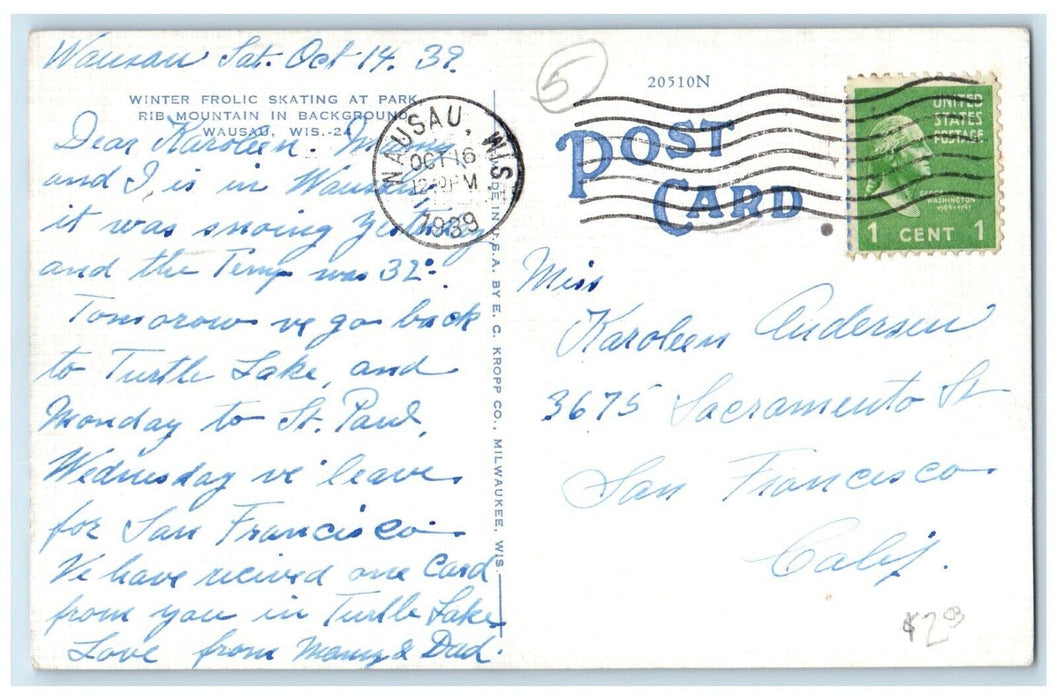 Wausau Sat. Oct 14. 39.
WINTER FROLIC SKATING AT PARK,
RIB MOUNTAIN IN BACKGROUND,
WAUSAU, WIS.-24
Dear Karoleen. Mamy
and I, is in Wausau
it was snoing Yesterday
and the Temp was 32°.
Tomorow ve go back
to Turtle Lake, and
Monday to St. Paul,
Wednesday ve leave
for San Francisco.
Ve have reiived one Card
from you in Turtle Lake
Love from Mamy & Dad.
WAUSAU, WIS.
OCT 16
PM
1939
MADE IN U.S.A. BY E. C. KROPP CO., MILWAUKEE, WIS.
5
20510N
POST
CARD
UNITED
STATES
POSTAGE
WASHINGTON
1 CENT 1
Miss
Karoleen Andersen
3675 Sacramento St
San Francisco
Calif.
$2.00